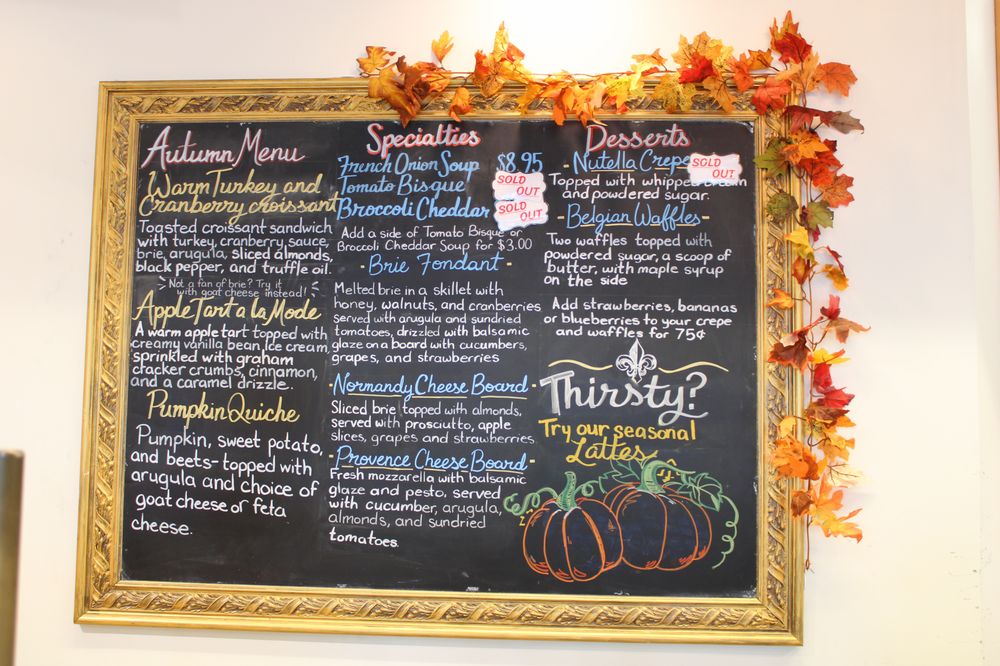 Autumn Menu
Warm Turkey and
Cranberry croissant
Toasted croissant sandwich
with turkey, cranberry sauce,
brie, arugula, sliced almonds,
black pepper, and truffle oil.
Not a fan of brie? Try it
with goat cheese instead!
Apple Tart a la Mode
A warm apple tart topped with
creamy vanilla bean ice cream,
sprinkled with graham
cracker crumbs, cinnamon,
and a caramel drizzle.
Pumpkin Quiche
Pumpkin, sweet potato,
and beets-topped with
arugula and choice of
goat cheese or feta
cheese.
Specialties
French Onion Soup $8.95
Tomato Bisque SOLD OUT
Broccoli Cheddar SOLD OUT
Add a side of Tomato Bisque or
Broccoli Cheddar Soup for $3.00
- Brie Fondant -
Melted brie in a skillet with
honey, walnuts, and cranberries
served with arugula and sundried
tomatoes, drizzled with balsamic
glaze on a board with cucumbers,
grapes, and strawberries
- Normandy Cheese Board -
Sliced brie topped with almonds,
served with prosciutto, apple
slices, grapes and strawberries.
- Provence Cheese Board -
Fresh mozzarella with balsamic
glaze and pesto, served
with cucumber, arugula,
almonds, and sundried
tomatoes.
Desserts
- Nutella Crepe SOLD OUT
Topped with whipped cream
and powdered sugar.
- Belgian Waffles -
Two waffles topped with
powdered sugar, a scoop of
butter, with maple syrup
on the side
Add strawberries, bananas
or blueberries to your crepe
and waffles for 75¢
Thirsty?
Try our seasonal
Lattes